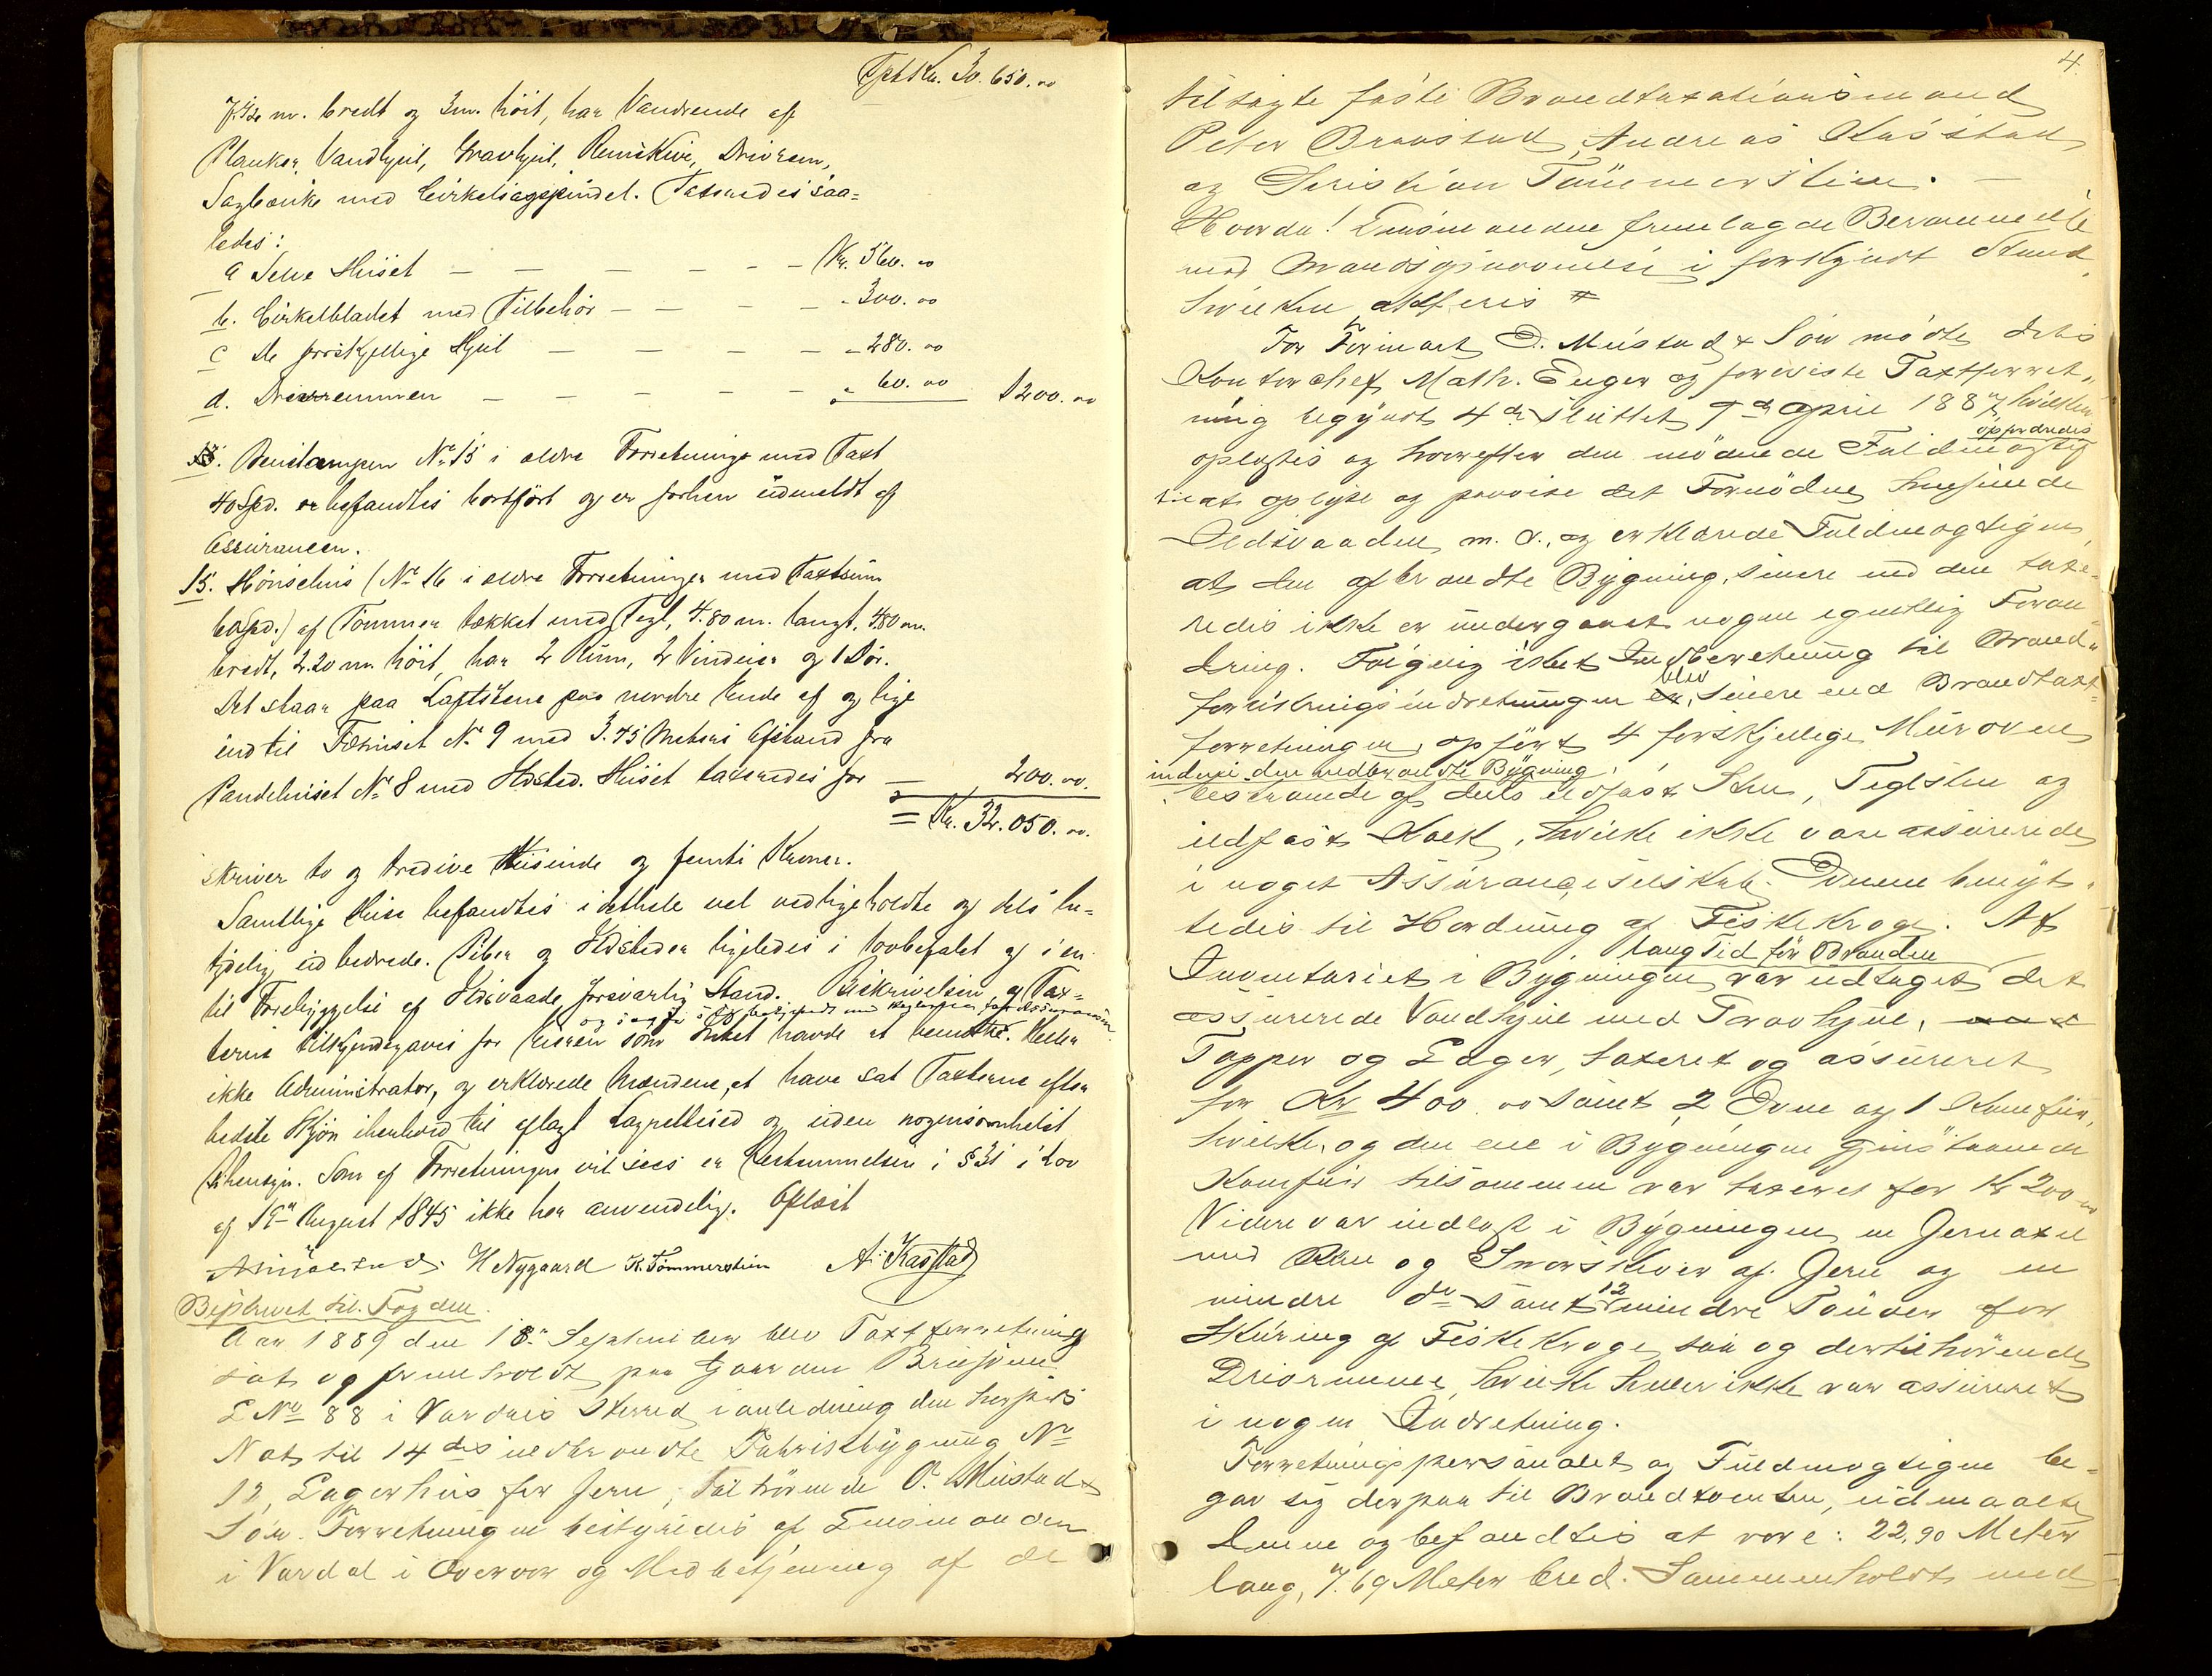 Kr. 30.650.00
7.42 m. bredt og 3 m. höit, har Vandrende af
Planker, Vandhjul, Gravhjul, Remskive, Drivrem,
Sagbænke med Cirkelsagspindel. Taxeredes saa-
ledes:
a Selve Huset — — — — — — Kr. 560.00
b. Cirkelbladet med Tilbehör — — — — „ 300.00
c De forskjellige Hjul — — — — — „ 280.00
d. Drivremmen — — — — — „ 60.00 1200.00
No. 15 i ældre Forretninger med Taxt
40 Spd. befandtes bortfört og er forhen udmeldt af
Assurancen.
15. Hönsehus (No. 16 i ældre Forretninger med Taxtsum
60 Spd.) af Tömmer tækket med Tegl, 4.80 m. langt, 4.80 m.
bredt, 2.20 m. höit, har 2 Rum, 2 Vinduer og 1 Dör.
Det staar paa nordre Ende af og lige
ind til Fæhuset No. 9 med 3.75 Meters Afstand fra
No. 8 med Ildsted. Huset taxeredes for — 200.00.
= Kr. 32.050.00.
skriver to og tredive Tusinde og femti Kroner.
Samtlige Huse befandtes i dethele vel vedligeholdte og dels be-
tydelig udbedrede. Piber og Ildsteder ligeledes i lovbefalet og i en
til Forebyggelse af Ildsvaade forsvarlig Stand. Beskrivelsen og Tax-
og sagde sig
terne tilkjendegaves for Eieren som Intet havde at bemærke. Heller
ikke Administrator, og erklærede Mændene, at have sat Taxterne efter
bedste Skjön ihenhold til aflagt Lagrettesed og uden nogensomhelst
Sihensyn. Som af Forretningen vil sees er Bestemmelsen i § 31 i Lov
af 19de August 1845 ikke her anvendelig. Oplæst
H Nygaard K. Tömmerstien A. Kasstad
Beskrevet til Fogden.
Aar 1889 den 18de September blev Taxtforretning
sat og fremholdt paa Gaarden Brusveen
L No 88 i Vardals Herred i anledning den herpaa
Nat til 14 ds nedbrændte Fabrikbygning No
12, Lagerhus for Jern, tilhörende O. Mustad &
Sön. Forretningen bestyredes af Lensmanden
i Vardal i Overvær og Medbetjening af de
4.
tilsagte faste Brandtaxationsmænd
Peter Braastad, Andreas Kasstad
og Kristian Tömmerstien. —
Hvorda! Lensmanden fremlagde Berammelse
med Mandsopnævnelse i forkyndt Stand
hvilken aktferes #
For Firmaet O. Mustad & Sön mödte dets
Kontorchef Math. Enger og foreviste Taxtforret-
ning begyndt 4de sluttet 7de April 1887, hvilken
opfordredes
oplæstes og hvorefter den mödende Fuldmægtig
til at oplyse og paavise det Fornödne henseende
Ildsvaaden m. v., og erklærede Fuldmægtigen,
at den afbrændte Bygning, siden den taxe-
redes ikke er undergaaet nogen egentlig Foran-
dring. Fölgelig Indberetning til Brand-
blev
forsikringsindretningen er, senere end Brandtaxt-
forretningen, opfört 4 forskjellige Murovne
inde i den nedbrændte Bygning
bestaaende af dels ildfast Sten, Teglsten og
ildfast Kalk, hvilke ikke vare assurerede
i noget Assuranceselskab. Ovnene benyt-
tedes til Hærdning af Fiskekroge. Af
lang Tid för Branden
Inventariet i Bygningen var udtaget det
assurerede Vandhjul med Gravhjul,
Tapper og Lager, taxeret og assureret
for Kr 400.00 samt 2 Ovne og 1 Komfur,
hvilke, og den ene i Bygningen gjenstaaende
Komfur tilsammen var taxeret for Kr 200.00
Videre var indlagt i Bygningen en Jernaxel
med og Snorskiver af Jern og en
12
mindre do samt mindre Tönder for
Skuring af Fiskekroge, saa og dertil hörende
Drivremme, hvilke heller ikke var assureret
i nogen Indretning.
Forretningspersonalet og Fuldmægtigen be-
gav sig derpaa til Brandtomten, udmaalte
denne og befandtes at være: 22,90 Meter
lang, 7.69 Meter bred. Sammenholdt med